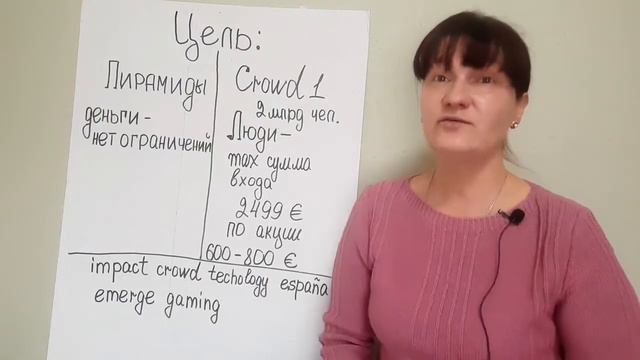 Цель:
Пирамиды
деньги -
нет ограничений
Crowd 1
2 млрд чел.
Люди -
max сумма
входа
2499 €
по акции
600-800 €
impact crowd techology españa
emerge gaming